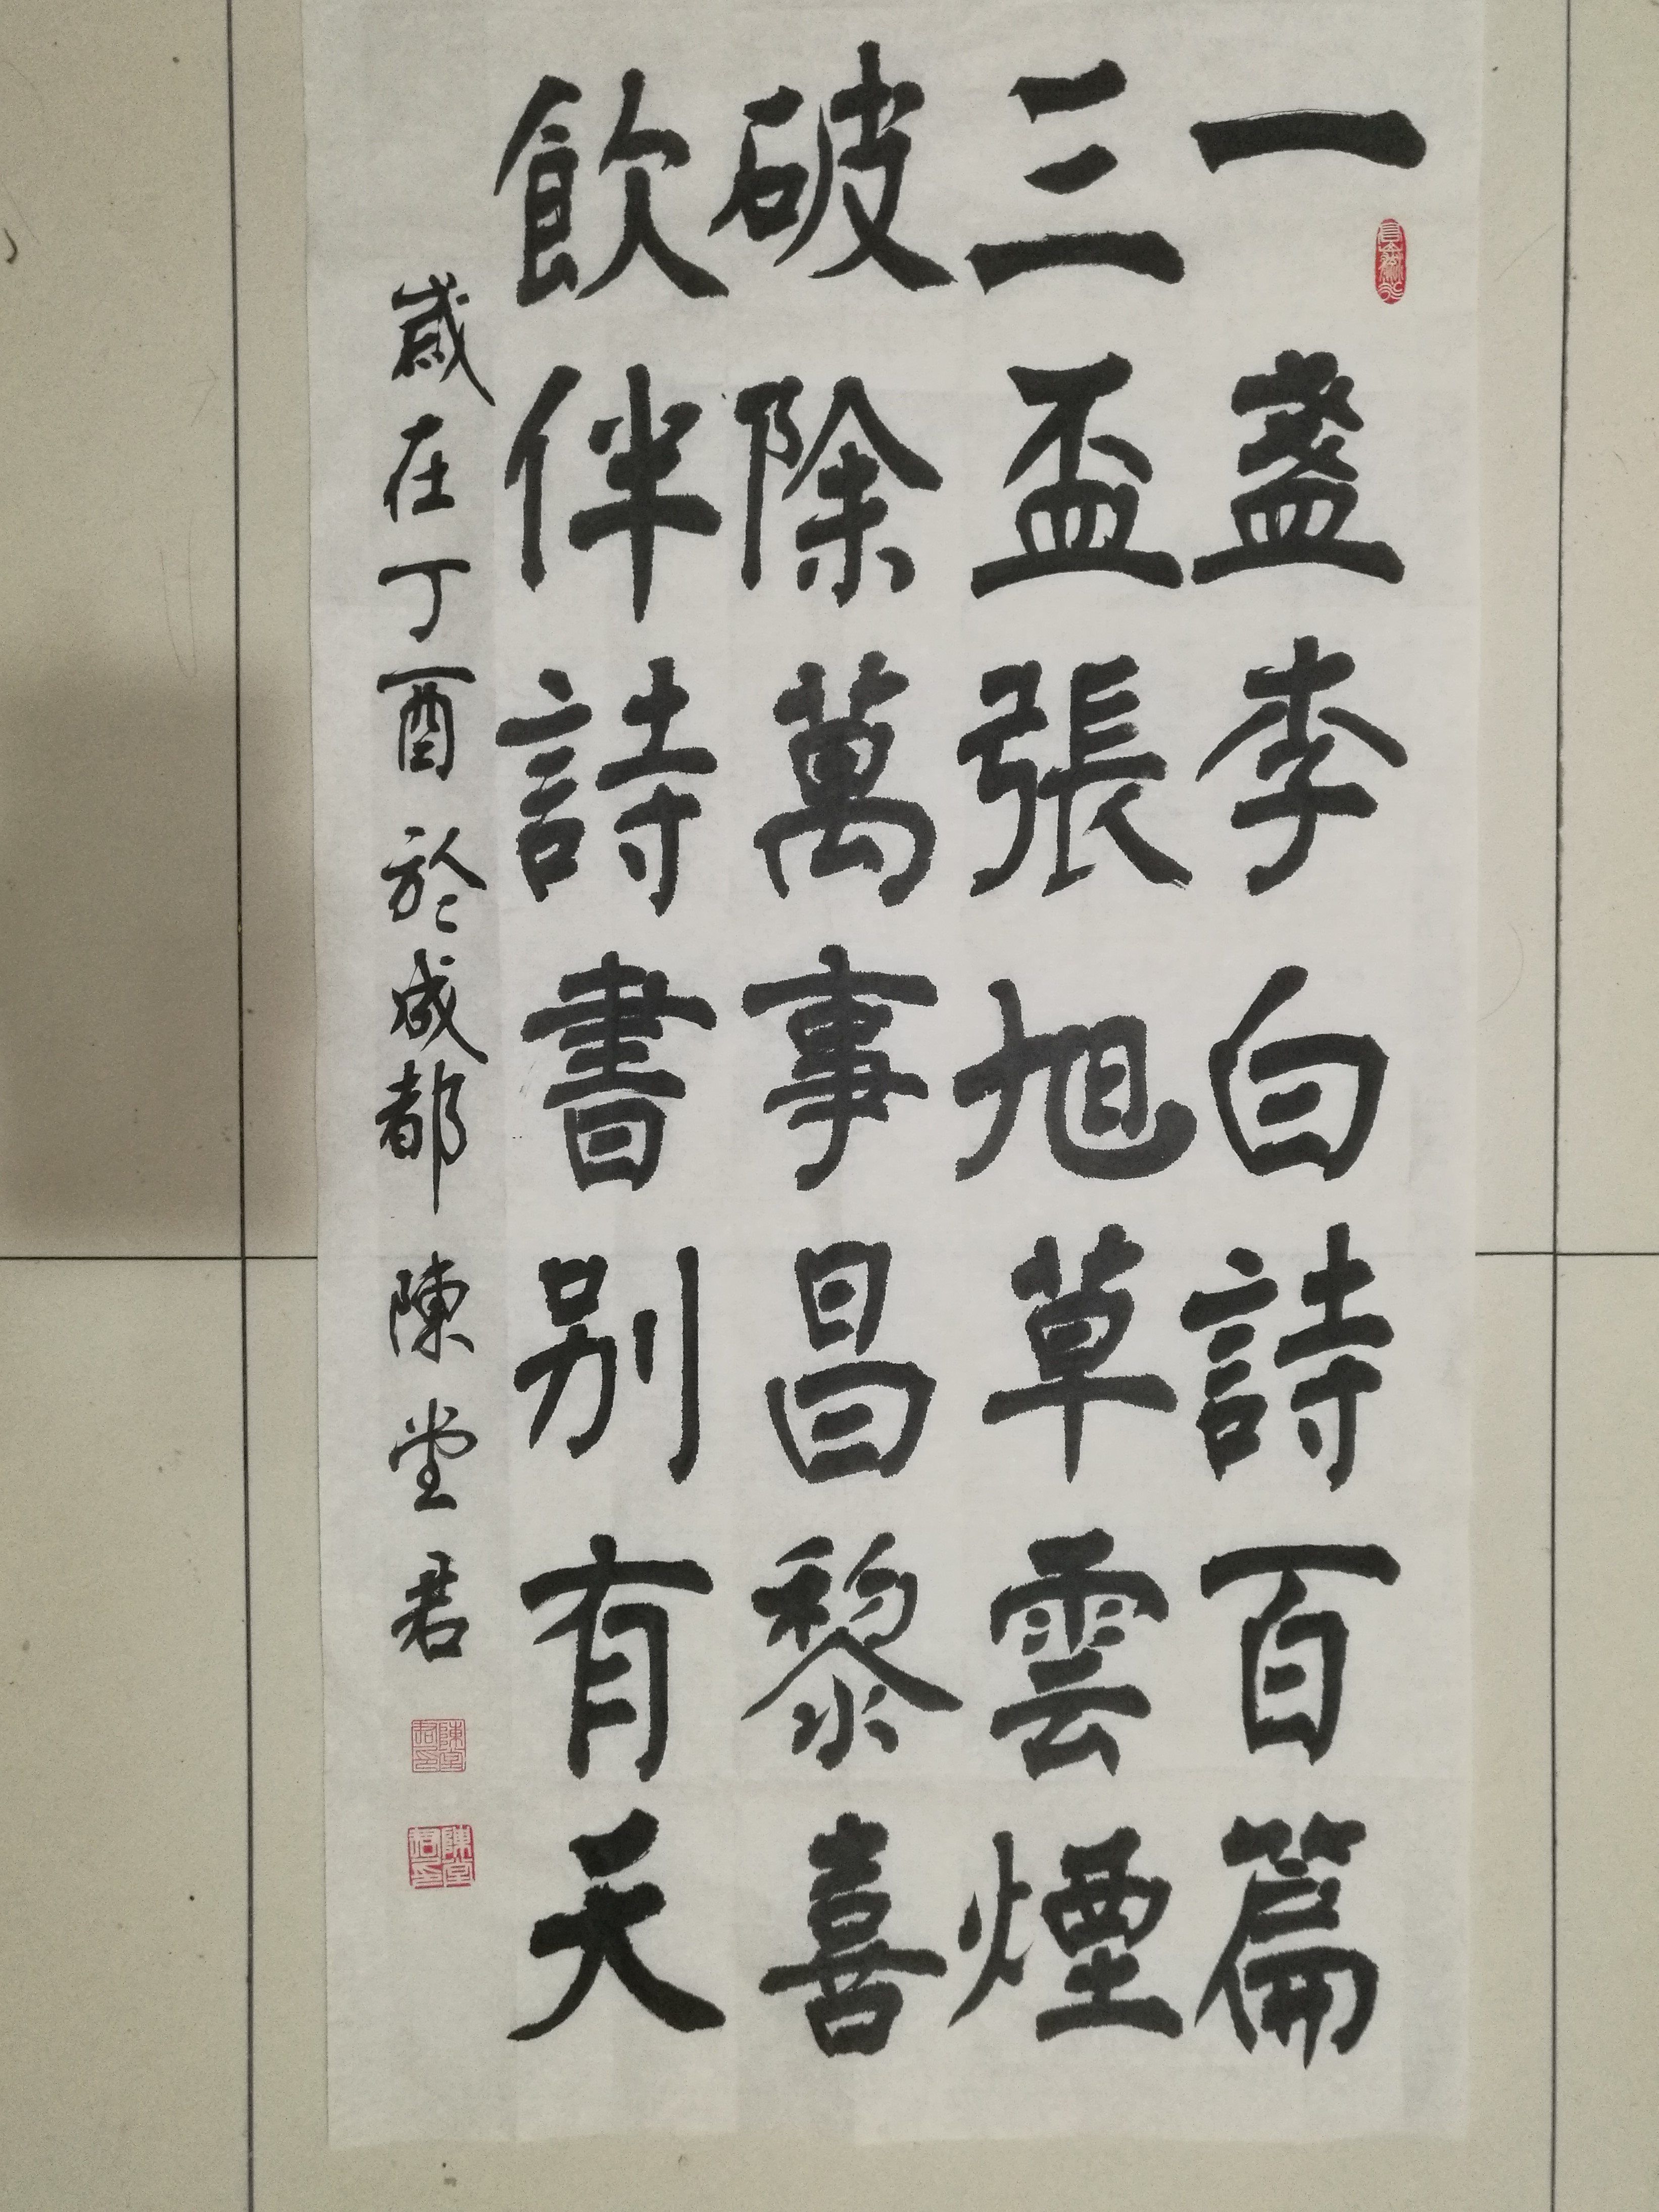 一盞李白詩百篇
三盃張旭草雲煙
破除萬事昌黎喜
飲伴詩書別有天
歲在丁酉於成都陳堂君